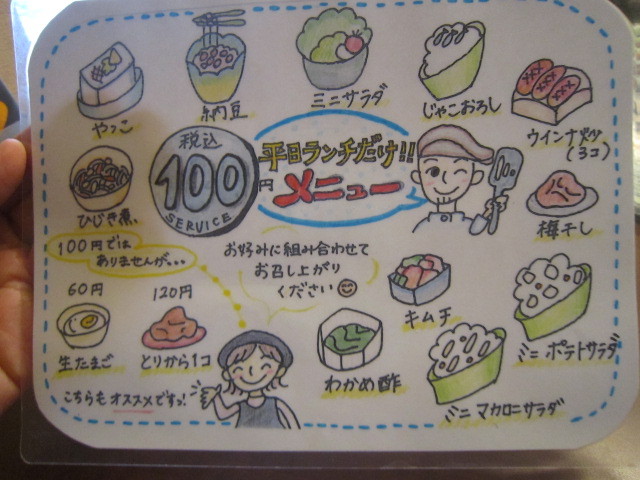 やっこ
納豆
ミニサラダ
じゃこおろし
ウインナ炒
(3コ)
ひじき煮
税込
100円
SERVICE
平日ランチだけ!!
メニュー
梅干し
100円では
ありませんが、、、
お好みに組み合わせて
お召し上がり
ください
キムチ
ミニ ポテトサラダ
60円
生たまご
120円
とりから1コ
わかめ酢
ミニ マカロニサラダ
こちらも オススメですっ!